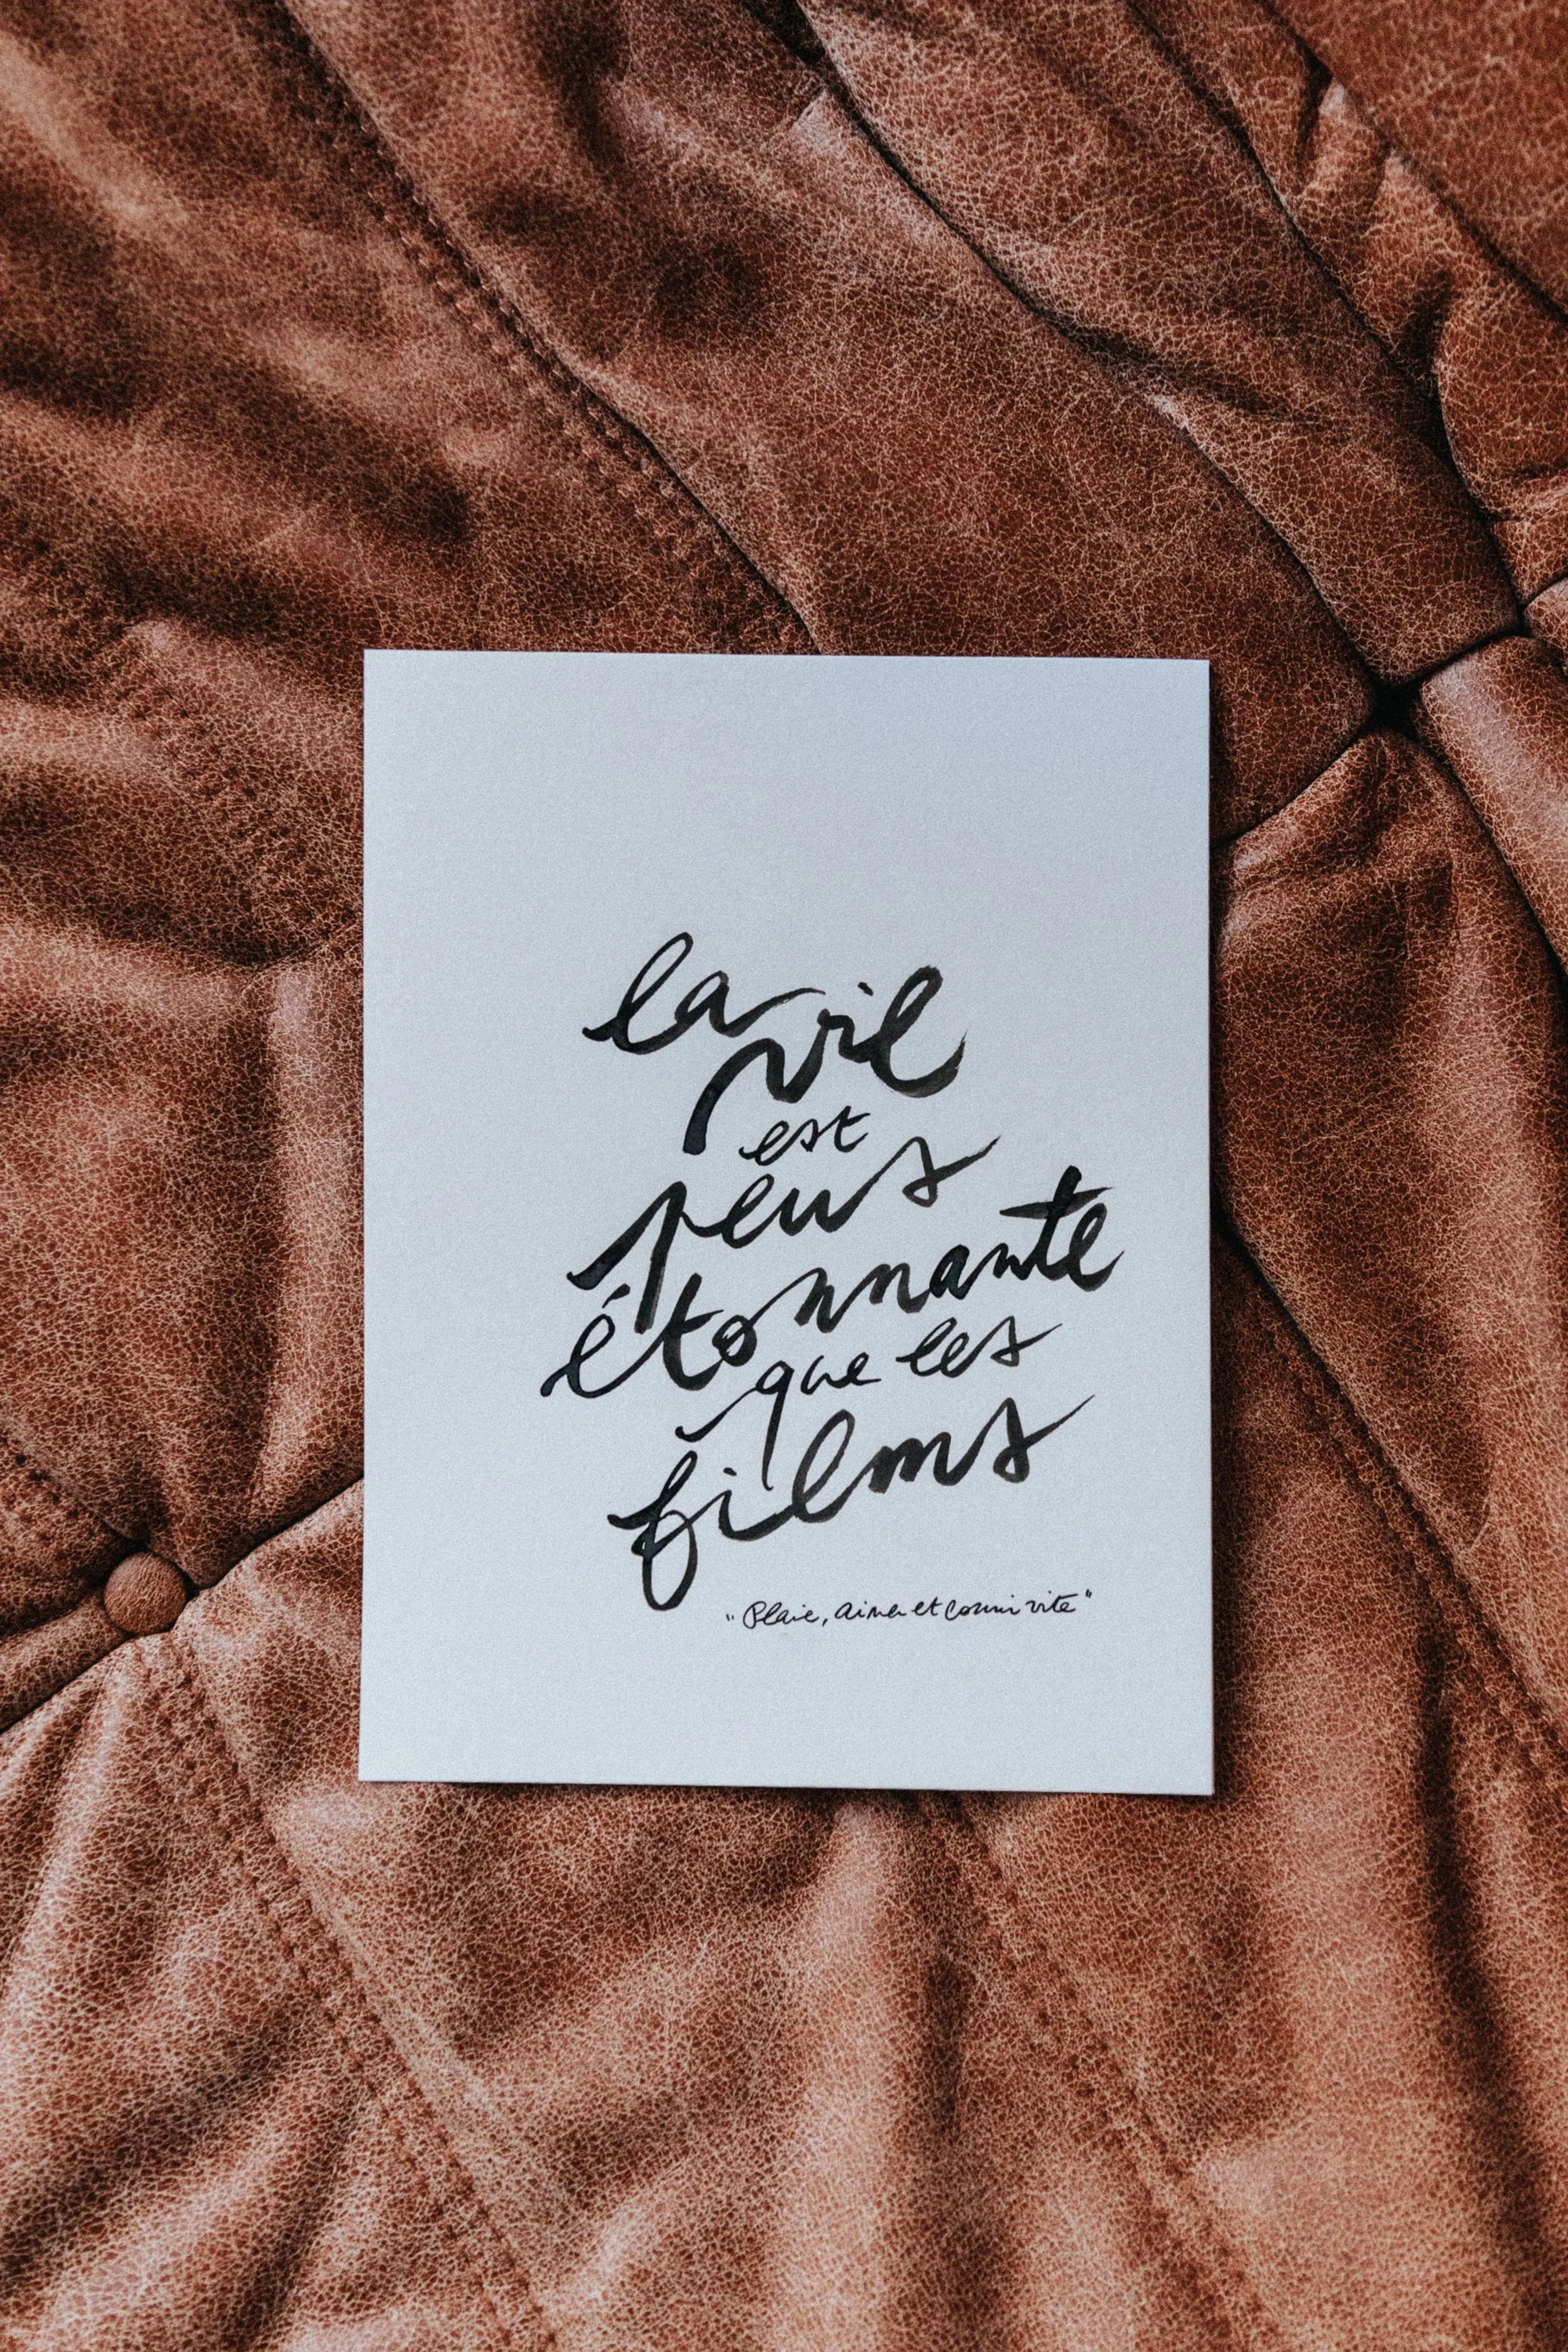 la
vie
est
plus
étonnante
que les
films
"Plaire, aimer et courir vite"